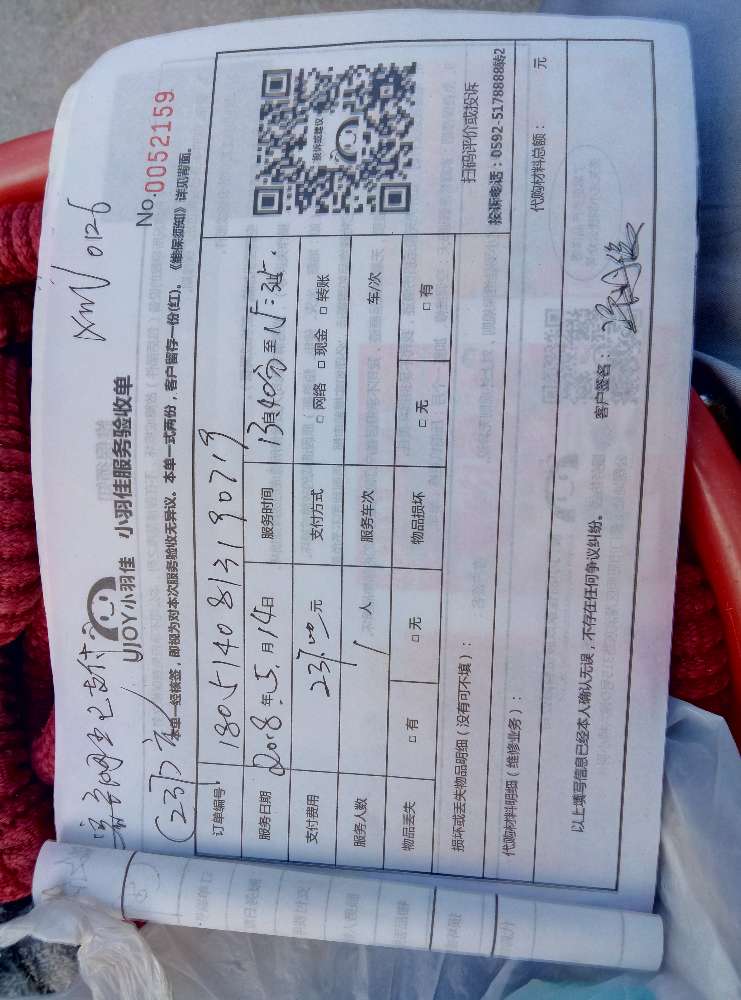 XMV 0126
No.0052159
UJOY小羽佳 小羽佳服务验收单
本单一经核签，即视为对本次服务验收无异议。本单一式两份，客户留存一份(红)。《维保须知》详见背面。
订单编号 180514081319071 9
服务日期 2018年5.月14日 服务时间 13点40分至
支付费用 元 支付方式 □ 网络 □ 现金 □ 转账
服务人数 1人 服务车次 车/次
物品丢失 □ 有 □ 无 物品损坏 □ 无 □ 有
投诉或建议
扫码评价或投诉
投诉电话：0592-5178888转2
损坏或丢失物品明细（没有可不填）：
代购材料明细（维修业务）： 代购材料总额： 元
以上填写信息已经本人确认无误，不存在任何争议纠纷。 客户签名：